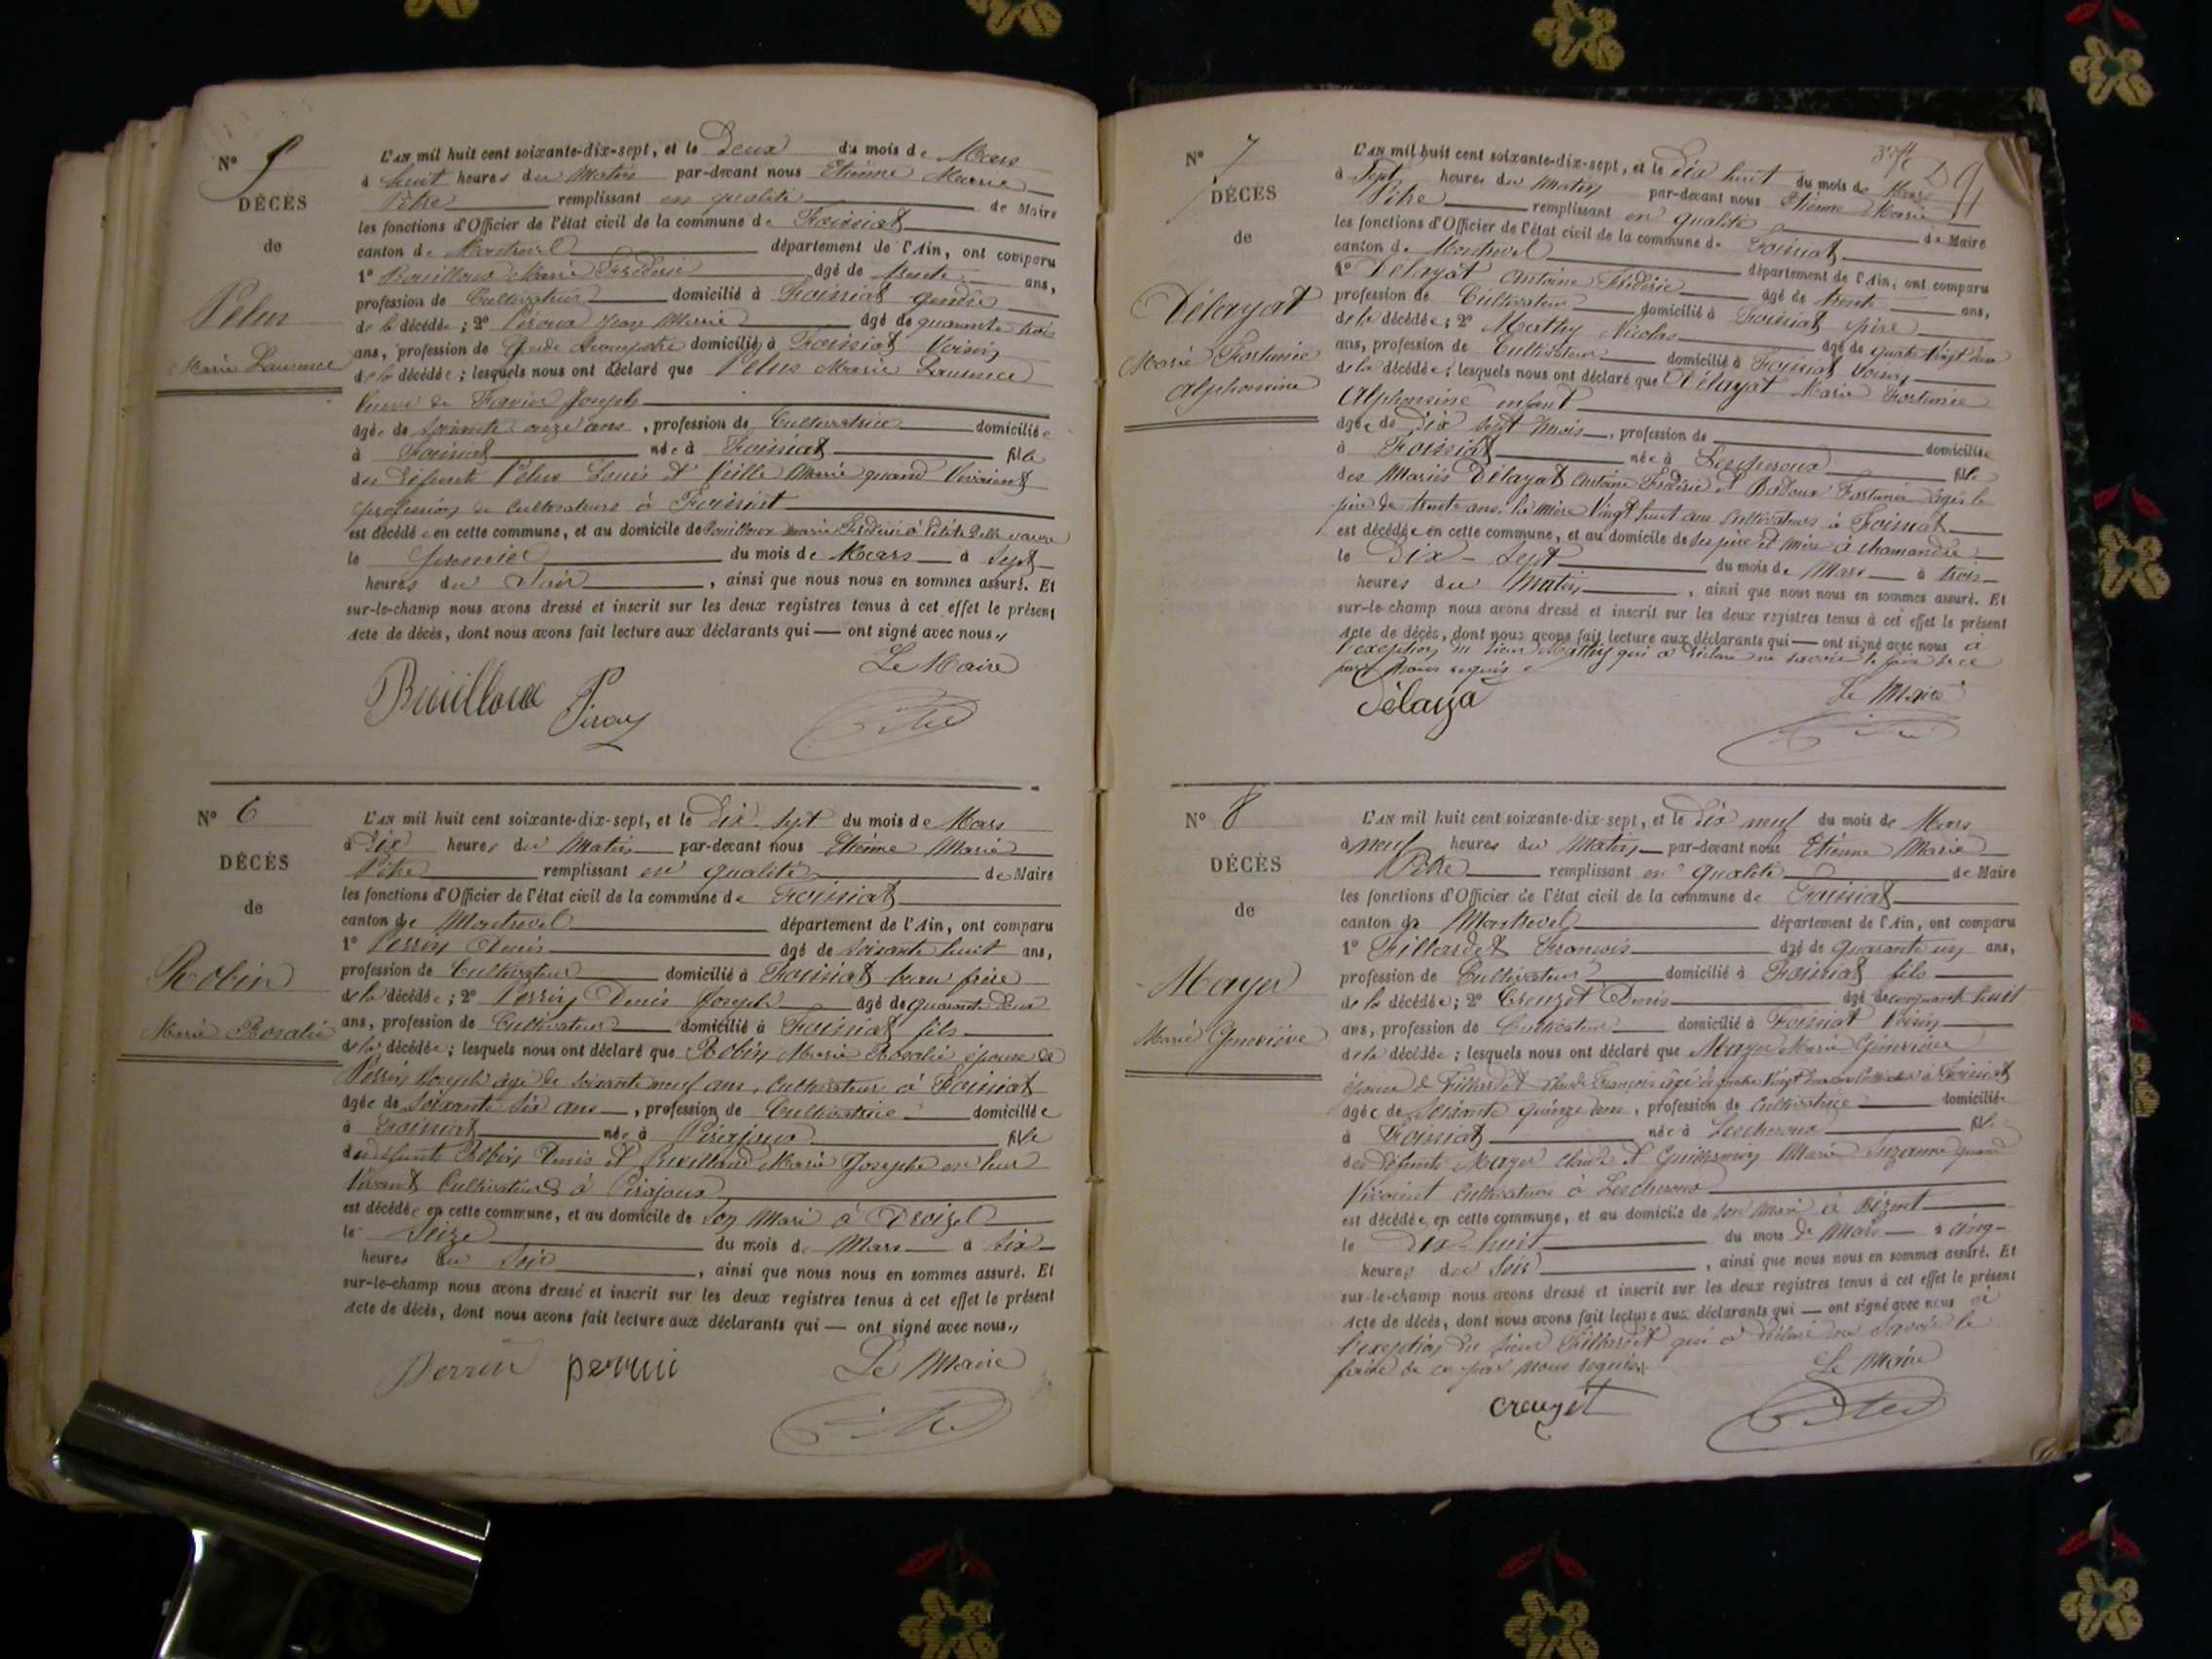 N° 5
DÉCÈS
de
Pelus
Marie Laurence
L'AN mil huit cent soixante-dix-sept, et le Deux du mois de Mars
à huit heures du Matin par-devant nous Etienne Marie
Pitre remplissant en qualité de Maire
les fonctions d'Officier de l'état civil de la commune de Foissiat
canton de Montrevel département de l'Ain, ont comparu
1° Bouilloux Marie Frédéric âgé de trente ans,
profession de Cultivateur domicilié à Foissiat gendre
de la décédée ; 2° Piroux Jean Marie âgé de quarante trois
ans, profession de Garde champêtre domicilié à Foissiat Voisin
de la décédée ; lesquels nous ont déclaré que Pelus Marie Laurence
Veuve de Joseph
âgée de soixante onze ans, profession de Cultivatrice domiciliée
à Foissiat née à Foissiat fille
des défunts Pélus Louis et Marie quand Vivaient
profession de Cultivateurs à Foissiat
est décédée en cette commune, et au domicile de Bouilloux Marie Frédéric à
le premier du mois de Mars à Sept
heures du Soir, ainsi que nous nous en sommes assuré. Et
sur-le-champ nous avons dressé et inscrit sur les deux registres tenus à cet effet le présent
Acte de décès, dont nous avons fait lecture aux déclarants qui — ont signé avec nous.,
Le Maire
Bouilloux Piroux Pitre
N° 6
DÉCÈS
de
Robin
Marie Rosalie
L'AN mil huit cent soixante-dix-sept, et le Dix Sept du mois de Mars
à Dix heures du Matin par-devant nous Etienne Marie
Pitre remplissant en qualité de Maire
les fonctions d'Officier de l'état civil de la commune de Foissiat
canton de Montrevel département de l'Ain, ont comparu
1° Perrin Denis âgé de soixante huit ans,
profession de Cultivateur domicilié à Foissiat beau frère
de la décédée ; 2° Perrin Denis Joseph âgé de quarante deux
ans, profession de Cultivateur domicilié à Foissiat fils
de la décédée ; lesquels nous ont déclaré que Robin Marie Rosalie épouse de
Perrin Joseph âgé de soixante neuf ans, Cultivateur à Foissiat
âgée de Soixante Six ans, profession de Cultivatrice domiciliée
à Foissiat née à Pirajoux fille
des défunts Robin Denis et Marie Josephe en leur
Vivant Cultivateurs à Pirajoux
est décédée en cette commune, et au domicile de Son Mari à
le Seize du mois de Mars à Six
heures du Soir, ainsi que nous nous en sommes assuré. Et
sur-le-champ nous avons dressé et inscrit sur les deux registres tenus à cet effet le présent
Acte de décès, dont nous avons fait lecture aux déclarants qui — ont signé avec nous.,
Perrin perrin Le Maire
Pitre
N° 7
DÉCÈS
de
Délayat
Marie Fortunée
Alphonsine
L'AN mil huit cent soixante-dix-sept, et le Dix huit du mois de Mars
à Sept heures du Matin par-devant nous Etienne Marie
Pitre remplissant en qualité de Maire
les fonctions d'Officier de l'état civil de la commune de Foissiat
canton de Montrevel département de l'Ain, ont comparu
1° Délayat Antoine Frédéric âgé de trente ans,
profession de Cultivateur domicilié à Foissiat père
de la décédée ; 2° Mathy Nicolas âgé de quatre Vingt deux
ans, profession de Cultivateur domicilié à Foissiat Voisin
de la décédée ; lesquels nous ont déclaré que Délayat Marie Fortunée
Alphonsine enfant
âgée de Dix Sept Mois, profession de domiciliée
à Foissiat née à Lescheroux fille
des Mariés Délayat Antoine Frédéric et Fortunée âgés le
père de trente ans, la mère Vingt huit ans Cultivateurs à Foissiat
est décédée en cette commune, et au domicile de Ses père et mère à Chamandre
le Dix-Sept du mois de Mars à trois
heures du Matin, ainsi que nous nous en sommes assuré. Et
sur-le-champ nous avons dressé et inscrit sur les deux registres tenus à cet effet le présent
Acte de décès, dont nous avons fait lecture aux déclarants qui — ont signé avec nous à
l'exception du sieur Mathy qui a déclaré ne savoir le faire de ce
par Nous requis
Délaya Le Maire
Pitre
N° 8
DÉCÈS
de
Mayer
Marie Geneviève
L'AN mil huit cent soixante-dix-sept, et le Dix neuf du mois de Mars
à neuf heures du Matin par-devant nous Etienne Marie
Pitre remplissant en qualité de Maire
les fonctions d'Officier de l'état civil de la commune de Foissiat
canton de Montrevel département de l'Ain, ont comparu
1° Fillardet François âgé de quarante un ans,
profession de Cultivateur domicilié à Foissiat fils
de la décédée ; 2° Creuzet Denis âgé de cinquante huit
ans, profession de Cultivateur domicilié à Foissiat Voisin
de la décédée ; lesquels nous ont déclaré que Mayer Marie Geneviève
épouse de Fillardet Claude François âgé de quatre Vingt ans Cultivateur à Foissiat
âgée de Soixante quinze ans, profession de Cultivatrice domiciliée
à Foissiat née à Lescheroux fille
des défunts Mayer Claude et Marie Suzanne quand
Vivaient Cultivateurs à Lescheroux
est décédée en cette commune, et au domicile de son mari à
le Dix-huit du mois de Mars à cinq
heures du Soir, ainsi que nous nous en sommes assuré. Et
sur-le-champ nous avons dressé et inscrit sur les deux registres tenus à cet effet le présent
Acte de décès, dont nous avons fait lecture aux déclarants qui — ont signé avec nous à
l'exception du sieur Fillardet qui a déclaré ne savoir le
faire de ce par Nous requis.
Le Maire
creuzet Pitre